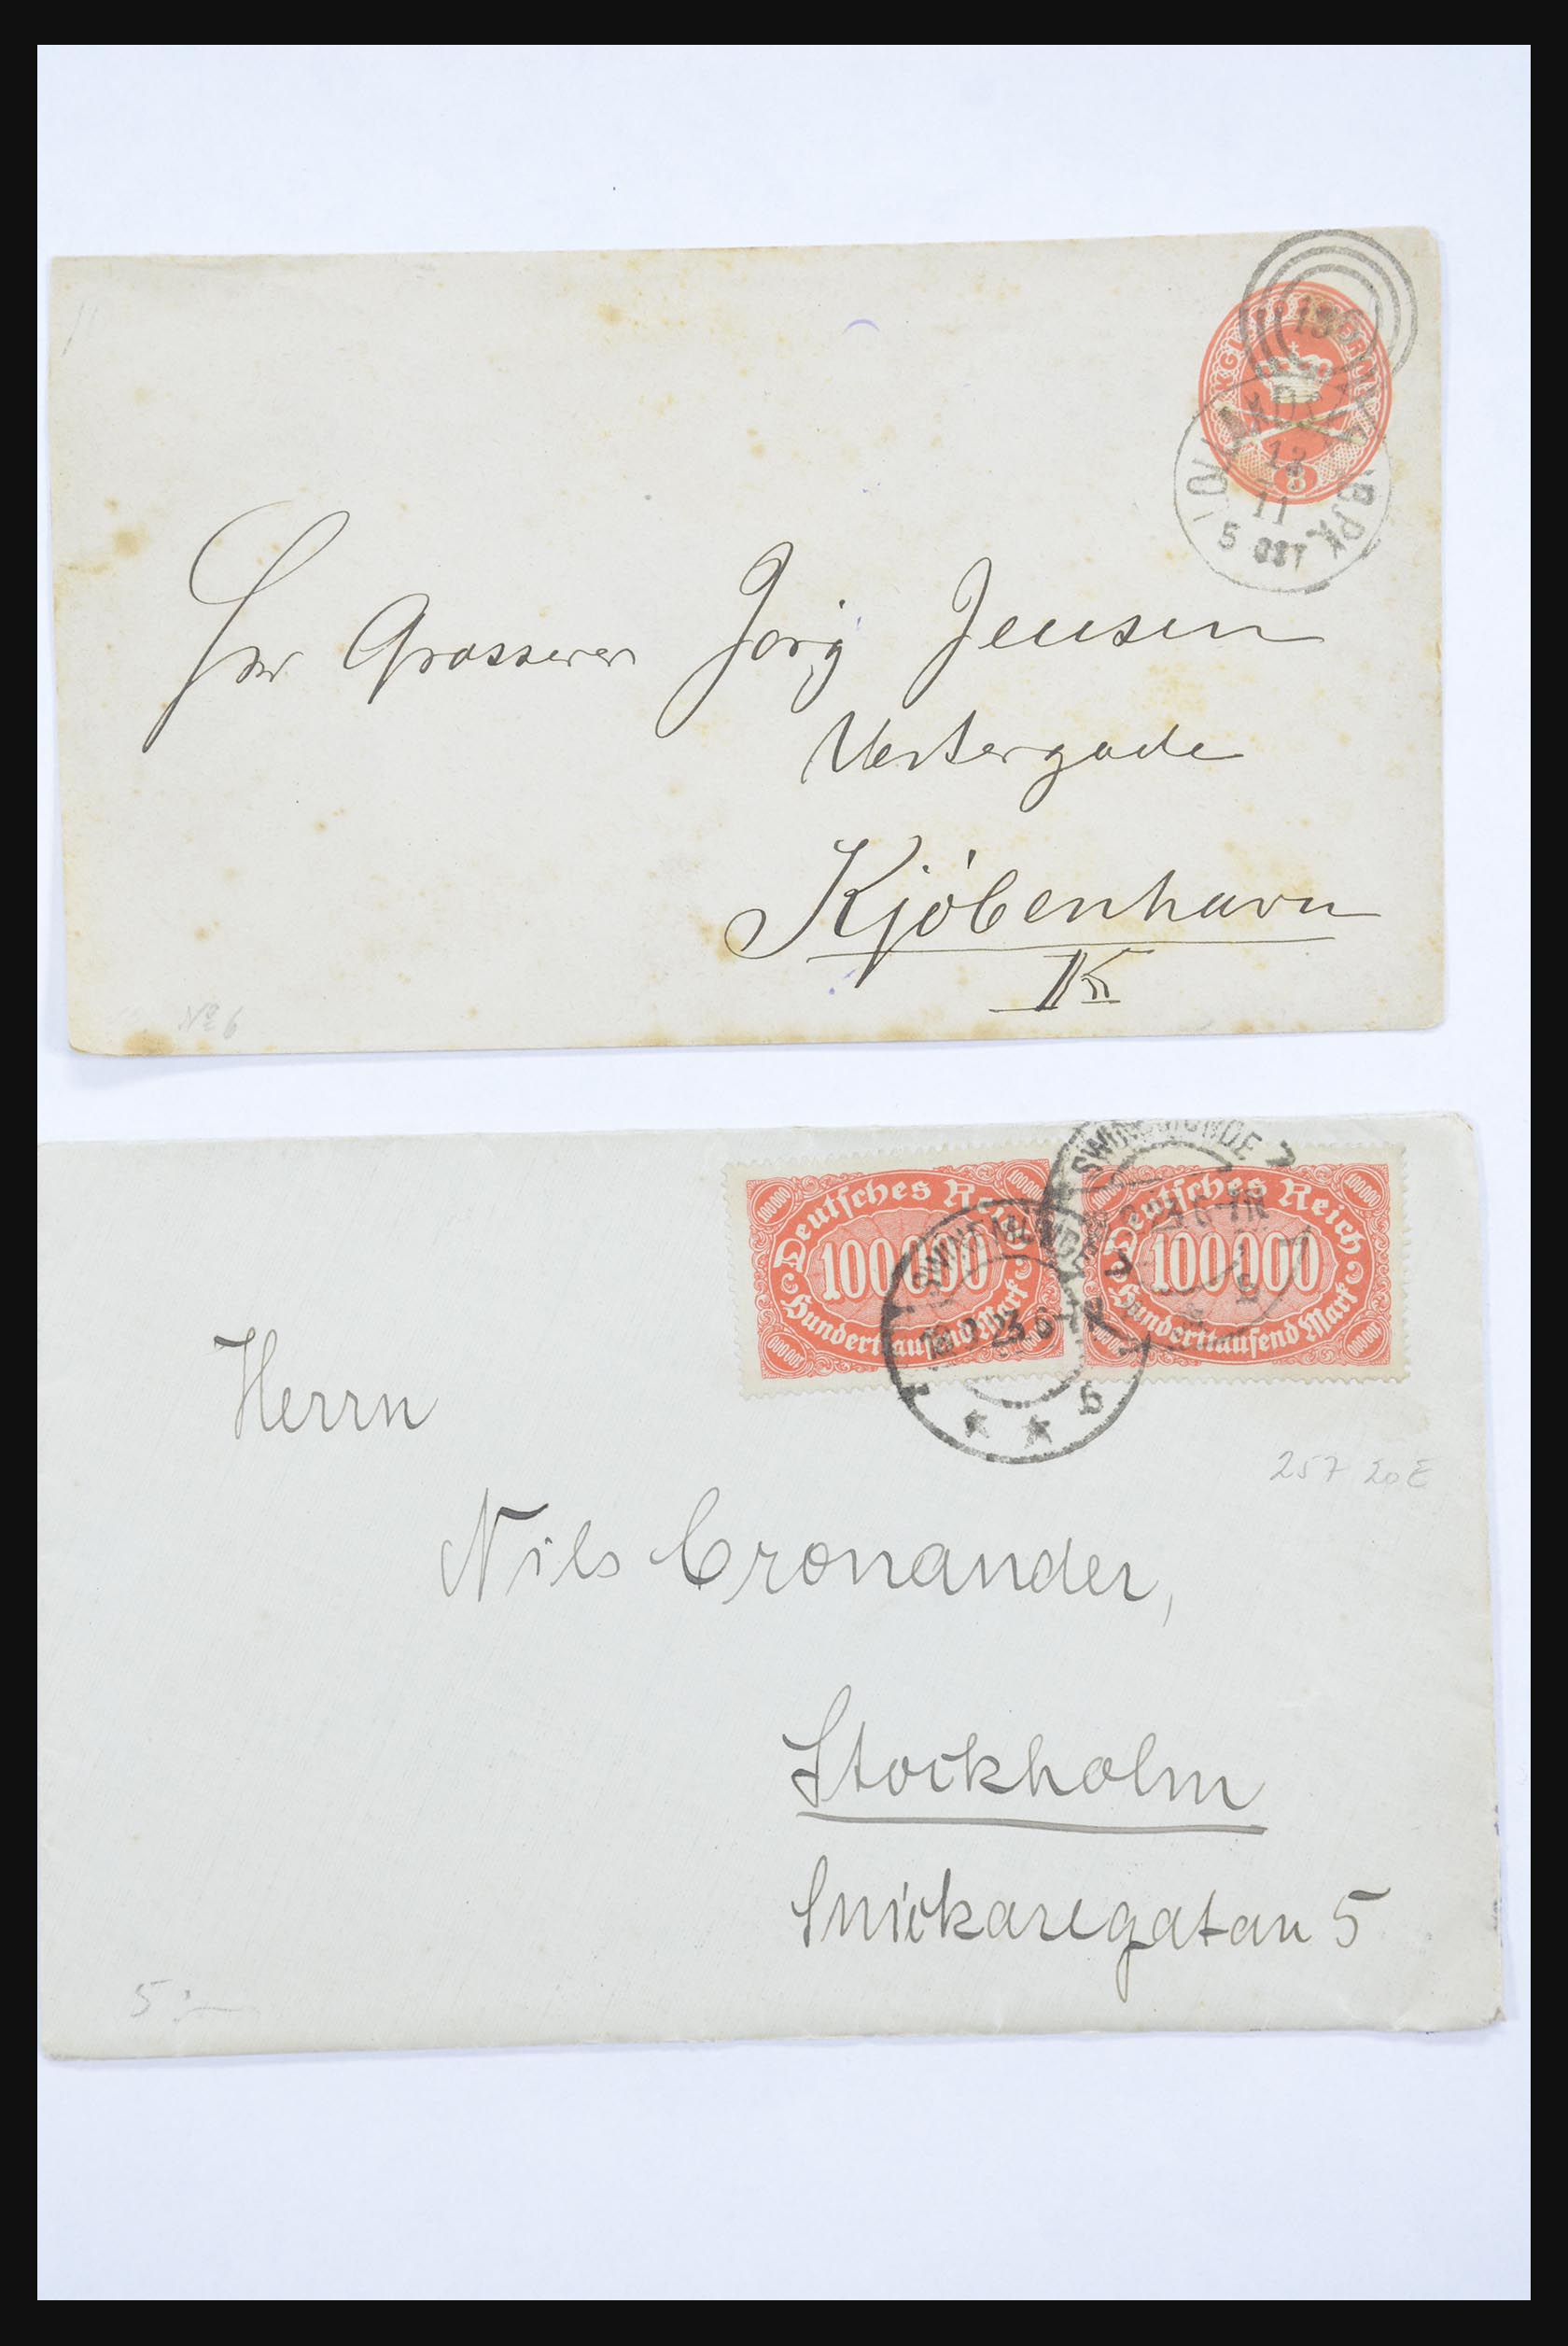 13
11
8
5 OST
Hr Grosserer Jörg Jensen
Vestergade
Kjöbenhavn
K
No 6
SWINEMÜNDE
Deutsches Reich
100000
Hunderttausend Mark
Deutsches Reich
100000
Hunderttausend Mark
SWINEMÜNDE
18.9.23 6-7 N
* * b
Herrn
257 20E
Nils Cronander,
Stockholm
Snickaregatan 5
5:-